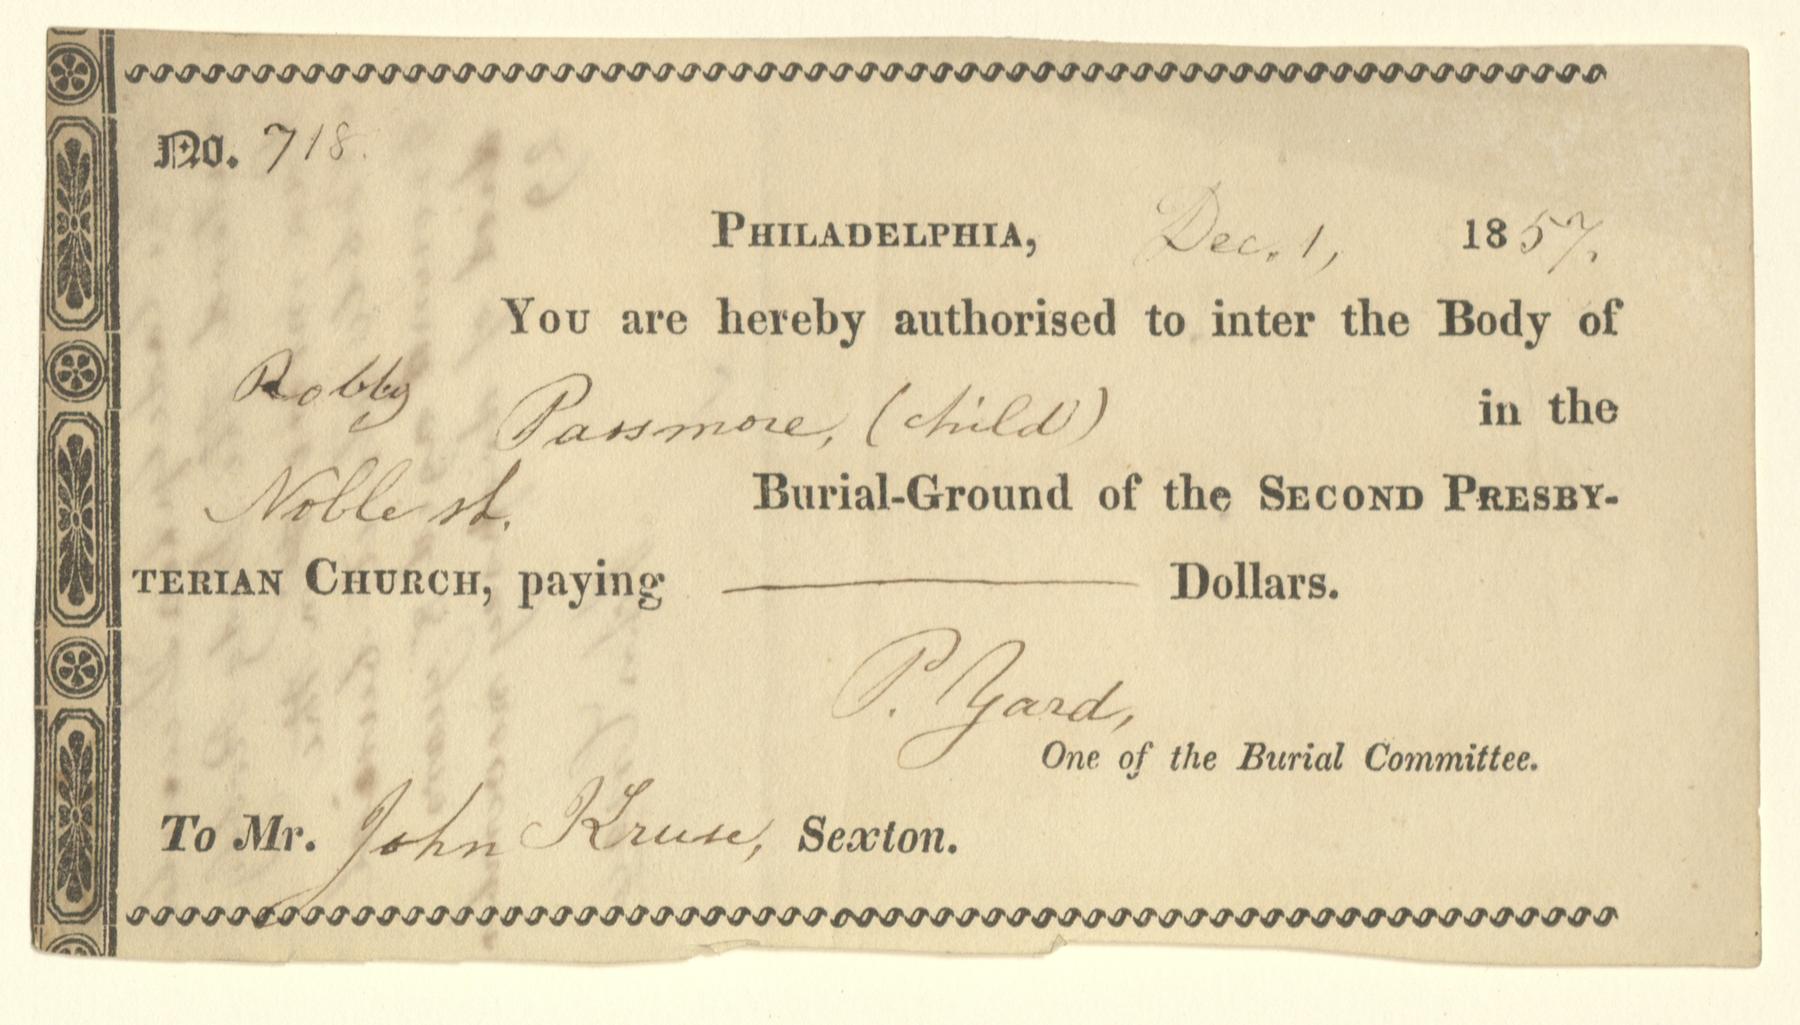 No. 718.
PHILADELPHIA, Dec. 1, 1857.
YOU are hereby authorised to inter the Body of
Robby Passmore, (child) in the
Noble st. Burial-Ground of the SECOND PRESBY-
TERIAN CHURCH, paying ——— Dollars.
P. Yard,
One of the Burial Committee.
To Mr. John Kruse, Sexton.